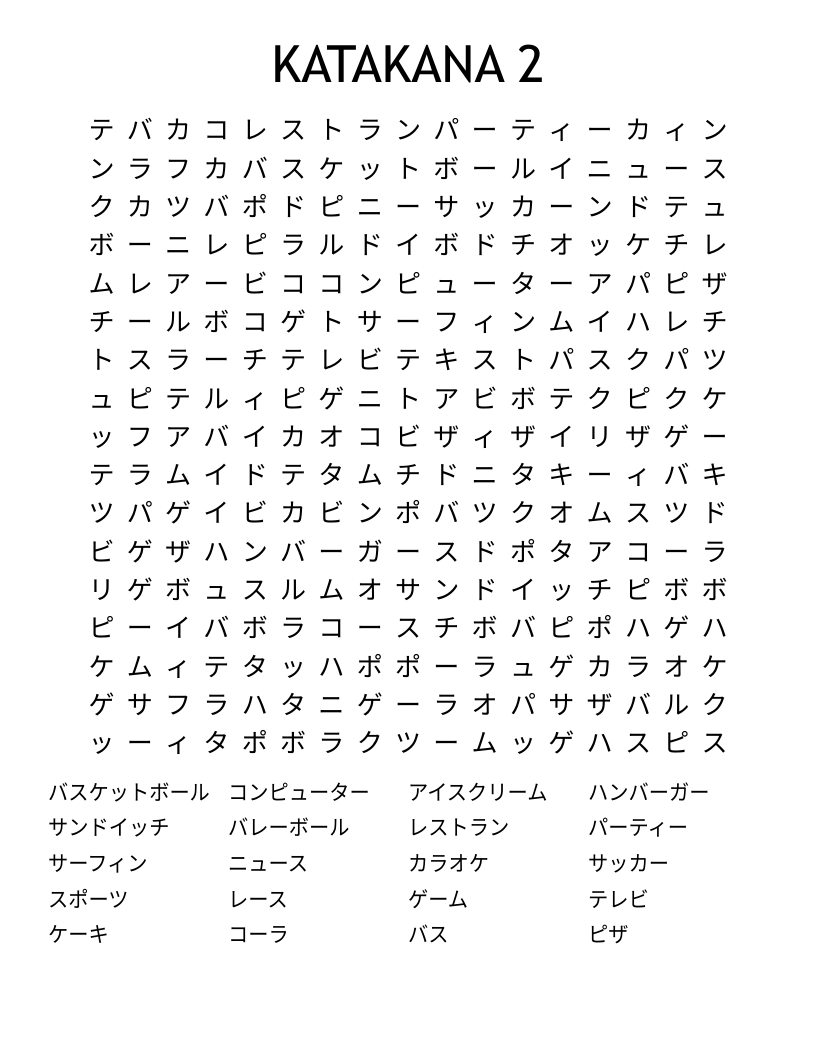 KATAKANA 2
テ バ カ コ レ ス ト ラ ン パ ー テ ィ ー カ ィ ン
ン ラ フ カ バ ス ケ ッ ト ボ ー ル イ ニ ュ ー ス
ク カ ツ バ ポ ド ピ ニ ー サ ッ カ ー ン ド テ ュ
ボ ー ニ レ ピ ラ ル ド イ ボ ド チ オ ッ ケ チ レ
ム レ ア ー ビ コ コ ン ピ ュ ー タ ー ア パ ピ ザ
チ ー ル ボ コ ゲ ト サ ー フ ィ ン ム イ ハ レ チ
ト ス ラ ー チ テ レ ビ テ キ ス ト パ ス ク パ ツ
ュ ピ テ ル ィ ピ ゲ ニ ト ア ビ ボ テ ク ピ ク ケ
ッ フ ア バ イ カ オ コ ビ ザ ィ ザ イ リ ザ ゲ ー
テ ラ ム イ ド テ タ ム チ ド ニ タ キ ー ィ バ キ
ツ パ ゲ イ ビ カ ビ ン ポ バ ツ ク オ ム ス ツ ド
ビ ゲ ザ ハ ン バ ー ガ ー ス ド ポ タ ア コ ー ラ
リ ゲ ボ ュ ス ル ム オ サ ン ド イ ッ チ ピ ボ ボ
ピ ー イ バ ボ ラ コ ー ス チ ボ バ ピ ポ ハ ゲ ハ
ケ ム ィ テ タ ッ ハ ポ ポ ー ラ ュ ゲ カ ラ オ ケ
ゲ サ フ ラ ハ タ ニ ゲ ー ラ オ パ サ ザ バ ル ク
ッ ー ィ タ ポ ボ ラ ク ツ ー ム ッ ゲ ハ ス ピ ス
バスケットボール コンピューター アイスクリーム ハンバーガー
サンドイッチ バレーボール レストラン パーティー
サーフィン ニュース カラオケ サッカー
スポーツ レース ゲーム テレビ
ケーキ コーラ バス ピザ